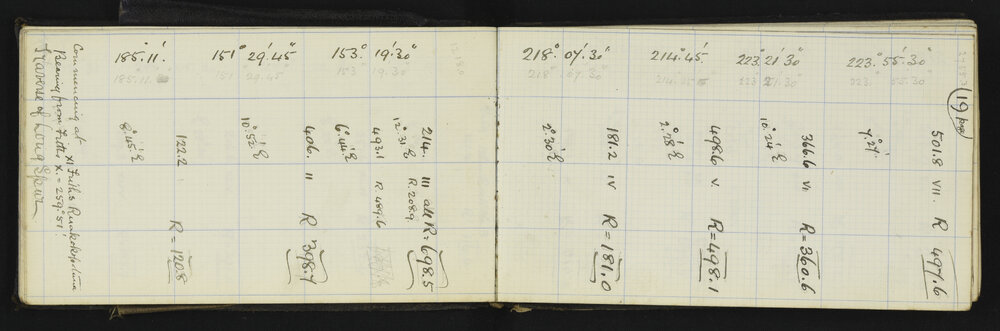 Traverse of Long Spur
Commencing at XI Firths Ruakokoputuna
Bearing from Firths X. = 259° 51'
185° 11'
185. 11.
8° 45' E
122.2
R = 120.8
151° 29' 45"
151 29. 45"
10° 52' E
406. II R 398.7
153° 19' 30"
153 19. 30"
6° 44' E
493.1 R 489.6
12° 31' E
214. III R. 208.9
all R = 698.5
218° 07' 30"
218° 07. 30"
2° 30' E
181.2 IV R = 181.0
214° 45'
2° 28' E
498.6 V. R = 498.1
223° 21' 30"
223 21. 30"
10° 24' E
366.6 VI R = 360.6
223° 55' 30"
223. 55. 30"
7° 27'
501.8 VII. R 497.6
19